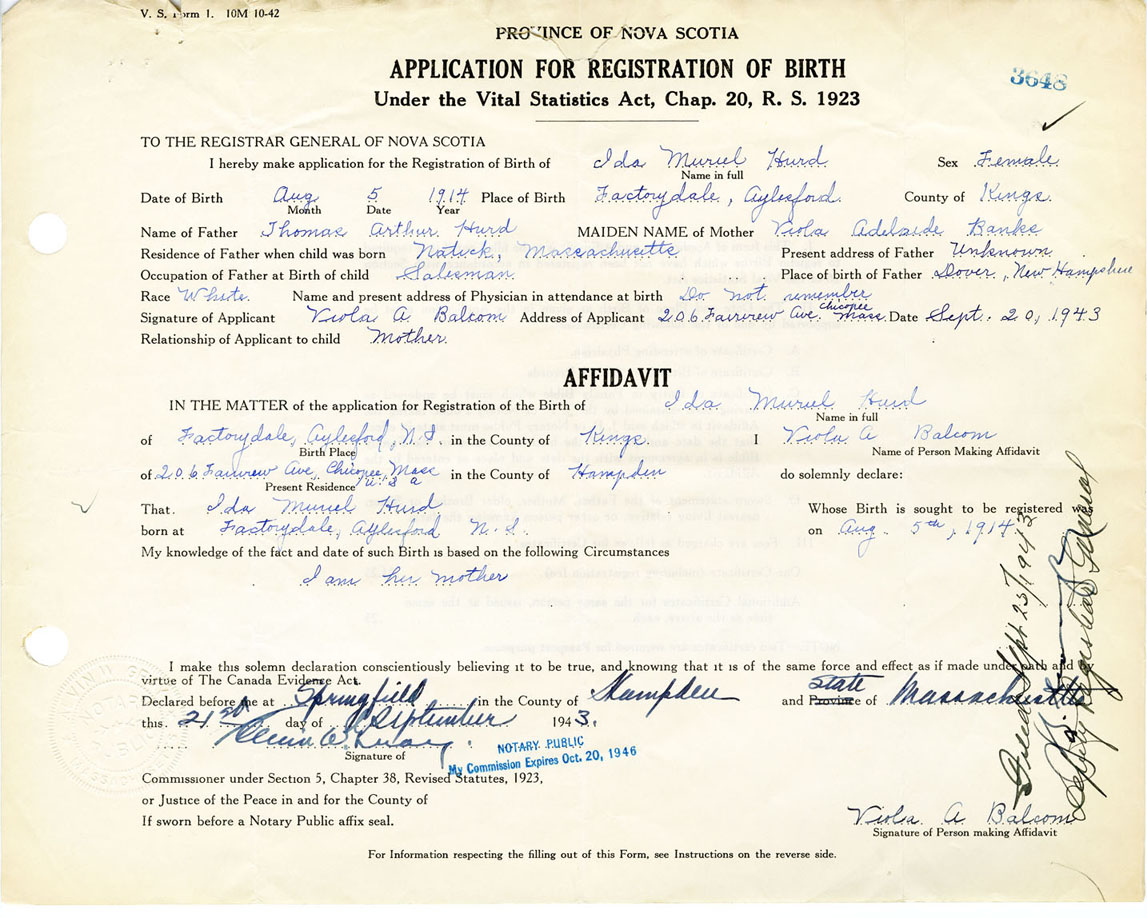 V. S. Form 1. 10M 10-42
PROVINCE OF NOVA SCOTIA
APPLICATION FOR REGISTRATION OF BIRTH
3648
Under the Vital Statistics Act, Chap. 20, R. S. 1923
TO THE REGISTRAR GENERAL OF NOVA SCOTIA
I hereby make application for the Registration of Birth of Ida Muriel Hurd Sex Female
Name in full
Date of Birth Aug 5 1914 Place of Birth Factorydale, Aylesford. County of Kings.
Month Date Year
Name of Father Thomas Arthur Hurd MAIDEN NAME of Mother Viola Adelaide Banks
Residence of Father when child was born Natick, Massachusetts Present address of Father Unknown
Occupation of Father at Birth of child Salesman. Place of birth of Father Dover, New Hampshire
Race White. Name and present address of Physician in attendance at birth Do not remember
Signature of Applicant Viola A Balcom Address of Applicant 206 Fairview Ave. Chicopee Mass. Date Sept. 20, 1943
Relationship of Applicant to child Mother.
AFFIDAVIT
IN THE MATTER of the application for Registration of the Birth of Ida Muriel Hurd
Name in full
of Factorydale, Aylesford, N.S. in the County of Kings. I Viola A Balcom
Birth Place Name of Person Making Affidavit
of 206 Fairview Ave, Chicopee, Mass in the County of Hampden do solemnly declare:
Present Residence U S a
That. Ida Muriel Hurd Whose Birth is sought to be registered was
born at Factorydale, Aylesford N.S. on Aug. 5th, 1914
My knowledge of the fact and date of such Birth is based on the following Circumstances
I am her mother
I make this solemn declaration conscientiously believing it to be true, and knowing that it is of the same force and effect as if made under oath and by
virtue of The Canada Evidence Act.
Declared before me at Springfield in the County of Hampden and Province State of Massachusetts
this 21st day of September 1943.
Signature of
NOTARY PUBLIC
My Commission Expires Oct. 20, 1946
Commissioner under Section 5, Chapter 38, Revised Statutes, 1923,
or Justice of the Peace in and for the County of
If sworn before a Notary Public affix seal.
Viola A Balcom
Signature of Person making Affidavit
For Information respecting the filling out of this Form, see Instructions on the reverse side.
Filed Sept 25/1943
Deputy Registrar General